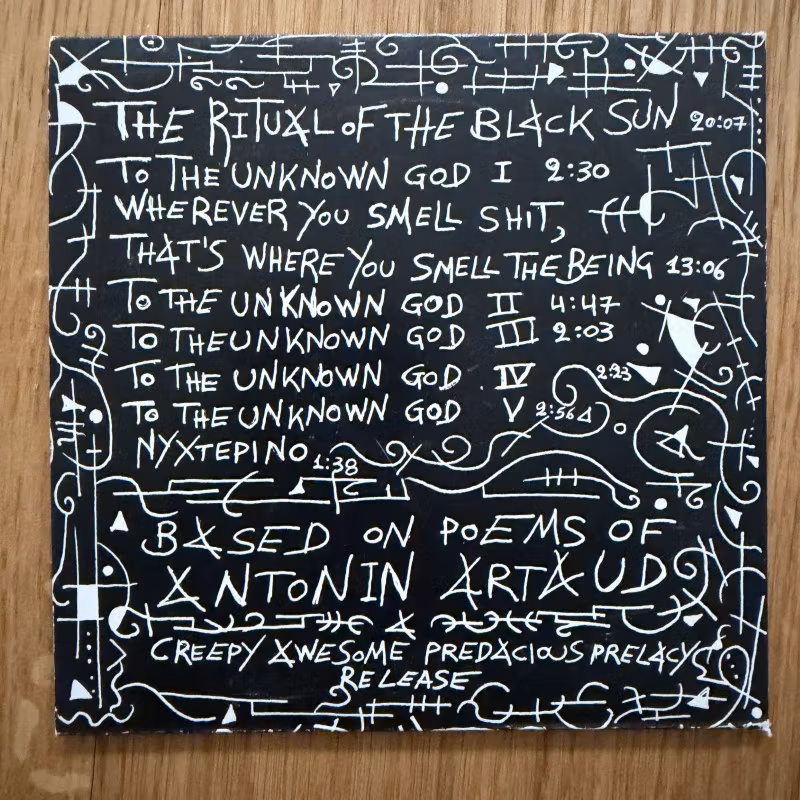 THE RITUAL OF THE BLACK SUN 20:07
TO THE UNKNOWN GOD I 2:30
WHEREVER YOU SMELL SHIT,
THAT'S WHERE YOU SMELL THE BEING 13:06
TO THE UNKNOWN GOD II 4:47
TO THE UNKNOWN GOD III 2:03
TO THE UNKNOWN GOD IV 2:23
TO THE UNKNOWN GOD V 2:56
NYXTEPINO 1:38
BASED ON POEMS OF
ANTONIN ARTAUD
CREEPY AWESOME PREDACIOUS PRELACY
RELEASE